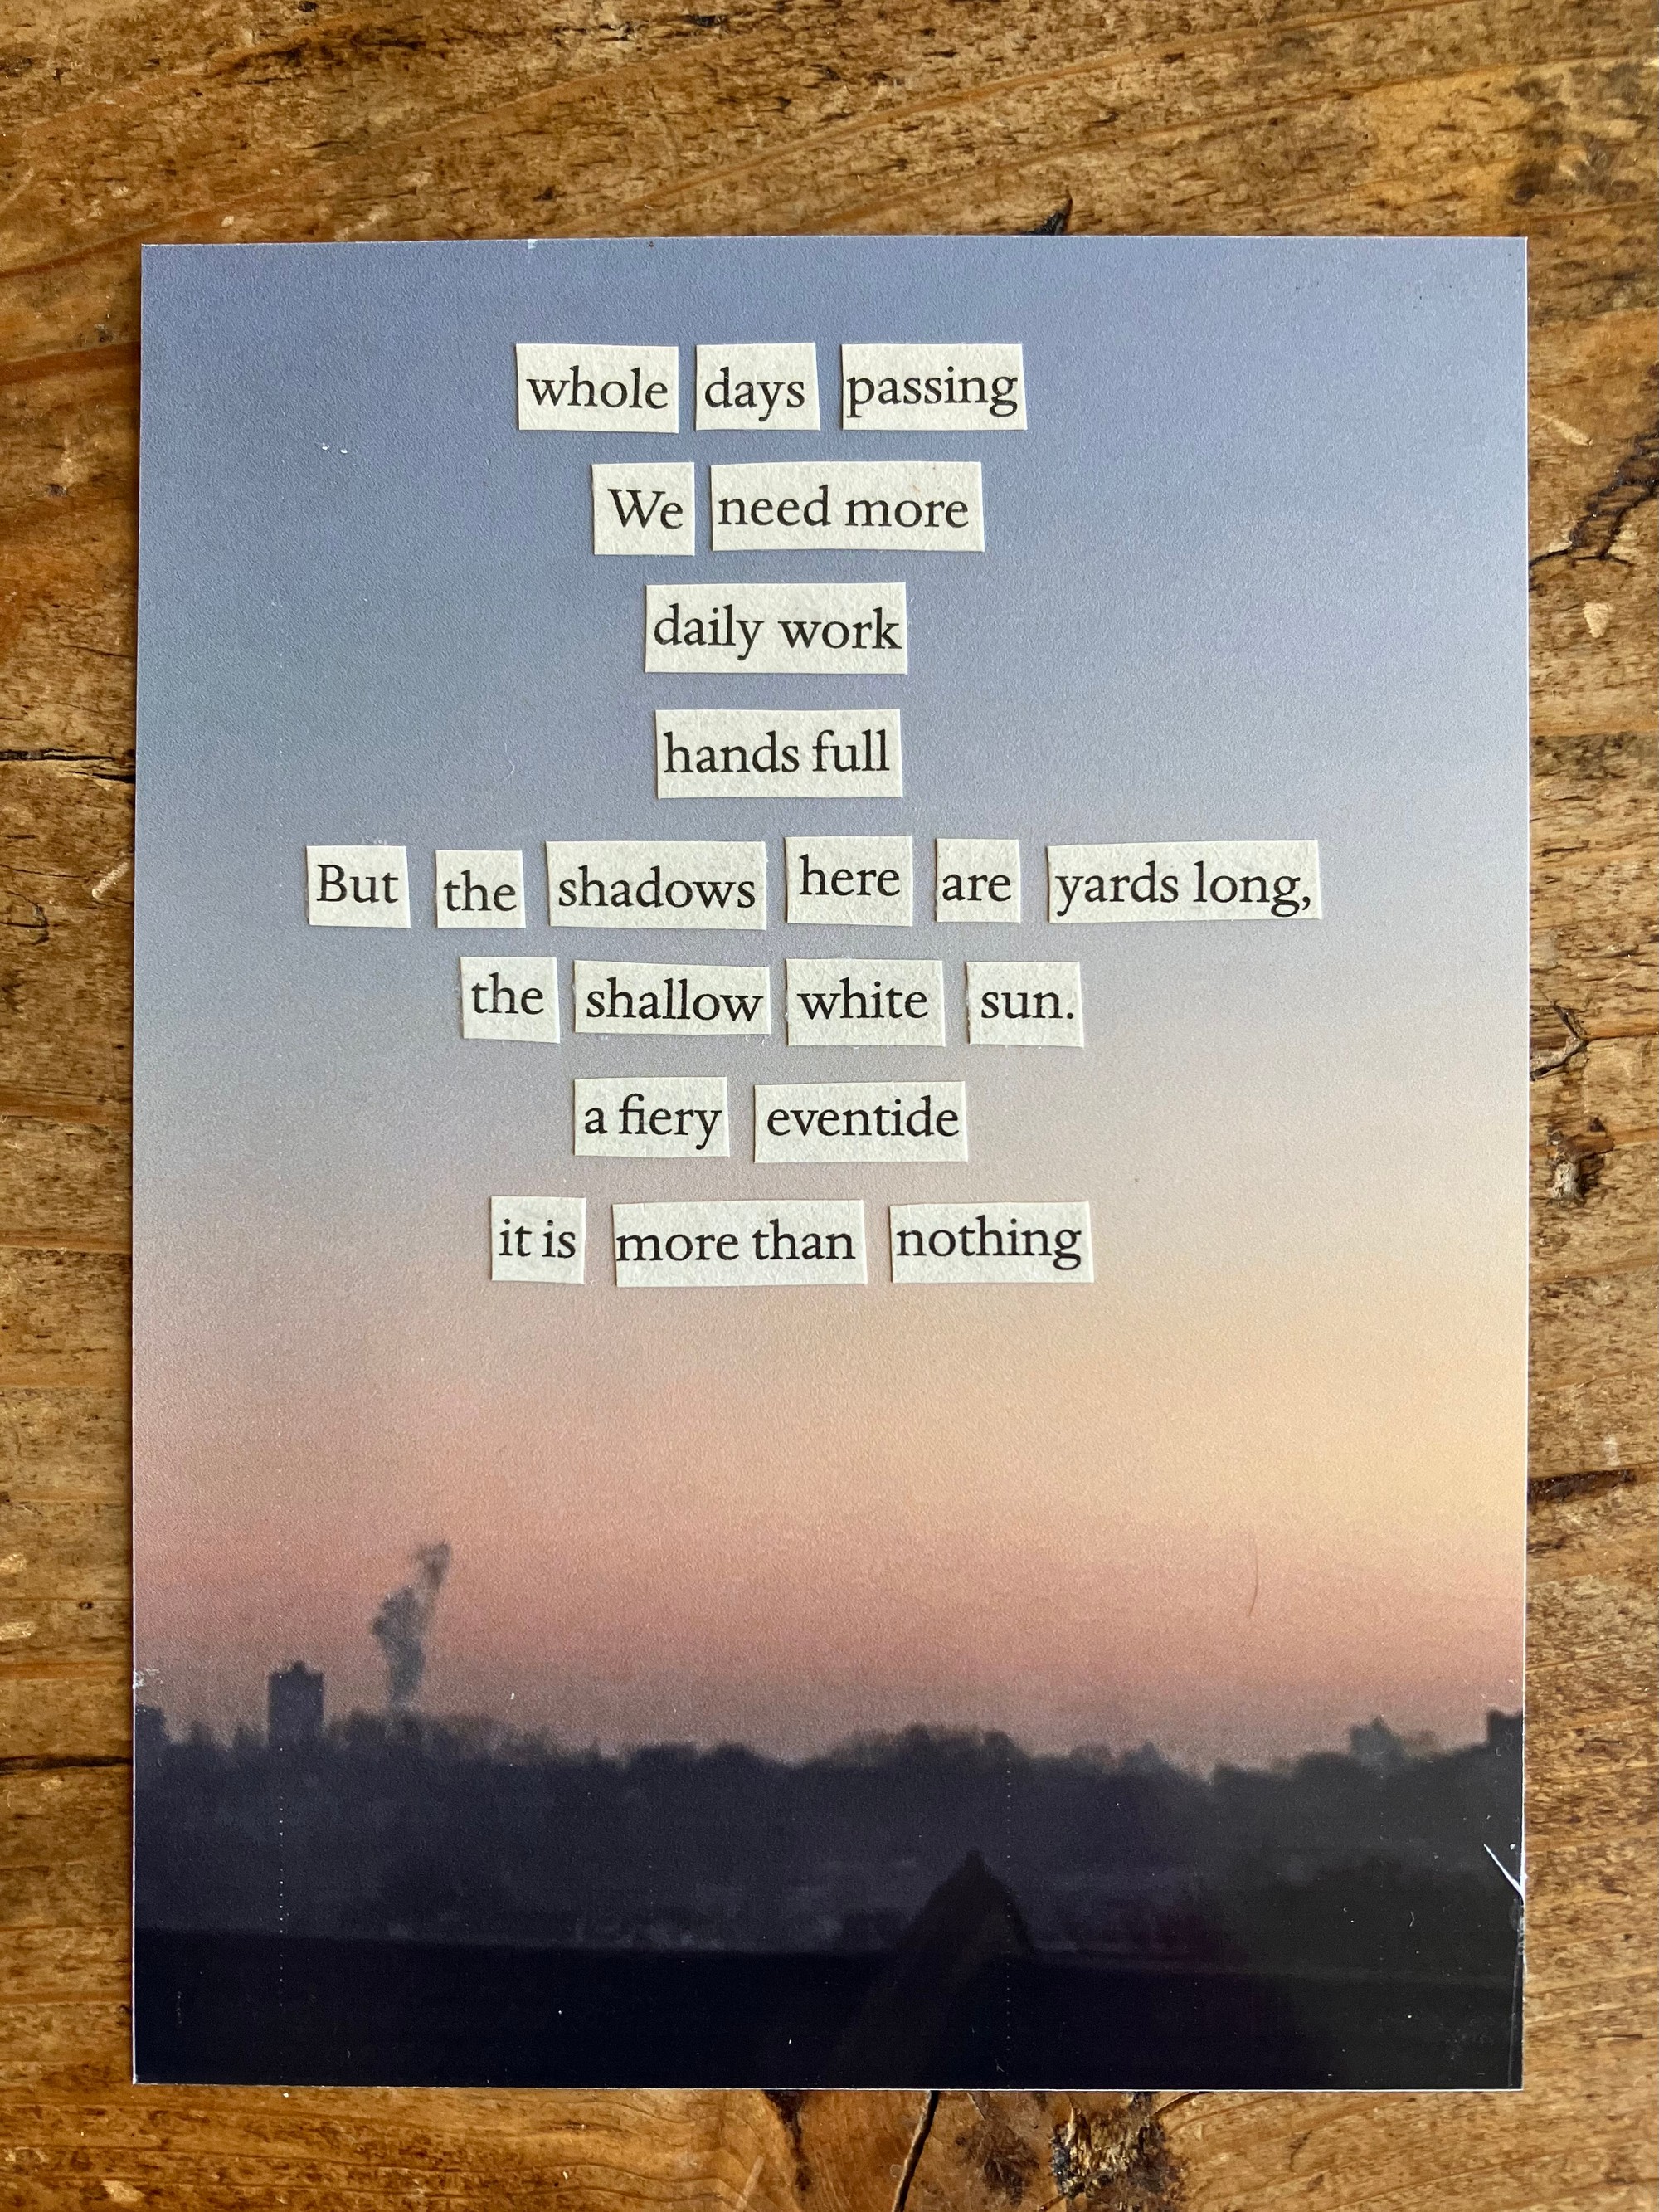 whole days passing
We need more
daily work
hands full
But the shadows here are yards long,
the shallow white sun.
a fiery eventide
it is more than nothing